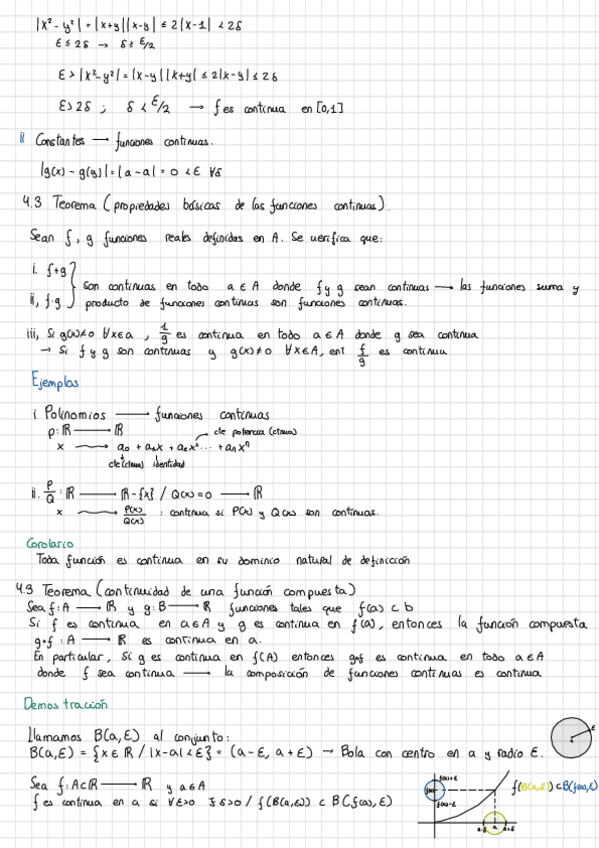 |x² - y²| = |x+y||x-y| ≤ 2|x-1| < 2δ
ε ≤ 2δ → δ ≥ ε/2
ε > |x²-y²| = |x-y||x+y| ≤ 2|x-y| ≤ 2δ
ε > 2δ ; δ < ε/2 → f es continua en [0,1]
ii Constantes → funciones continuas.
|g(x) - g(y)| = |a - a| = 0 < ε ∀δ
4.3 Teorema (propiedades básicas de las funciones continuas).
Sean f, g funciones reales definidas en A. Se verifica que:
i. f+g
ii, f·g } son continuas en todo a ∈ A donde f y g sean continuas → las funciones suma y
producto de funciones continuas son funciones continuas.
iii, Si g(x)≠0 ∀x∈a , 1/g es continua en todo a ∈ A donde g sea continua
→ Si f y g son continuas y g(x)≠0 ∀x∈A, ent f/g es continua
Ejemplos
i Polinomios → funciones continuas
p: ℝ → ℝ cte potencia (ctnua)
x ⟶ a₀ + a₁x + a₂x² ... + aₙxⁿ
cte (ctnua) identidad
ii. P/Q : ℝ → ℝ - {x} / Q(x) = 0 → ℝ
x ⟶ P(x)/Q(x) : continua si P(x) y Q(x) son continuas.
Corolario
Toda función es continua en su dominio natural de definición
4.3 Teorema (continuidad de una función compuesta)
Sea f: A → ℝ y g: B → ℝ funciones tales que f(a) ⊂ b
Si f es continua en a ∈ A y g es continua en f(a), entonces la función compuesta
g∘f : A → ℝ es continua en a.
En particular, si g es continua en f(A) entonces g∘f es continua en todo a ∈ A
donde f sea continua → la composición de funciones continuas es continua
Demostración
Llamamos B(a,ε) al conjunto:
B(a,ε) = {x ∈ ℝ / |x-a| < ε} = (a-ε, a+ε) → Bola con centro en a y radio ε.
ε
Sea f: A⊂ℝ → ℝ y a ∈ A
f es continua en a si ∀ε>0 ∃δ>0 / f(B(a,δ)) ⊂ B(f(a),ε)
f(a)+ε
f(a)
f(a)-ε
f(B(a,δ)) ⊂ B(f(a),ε)
a-δ a a+δ